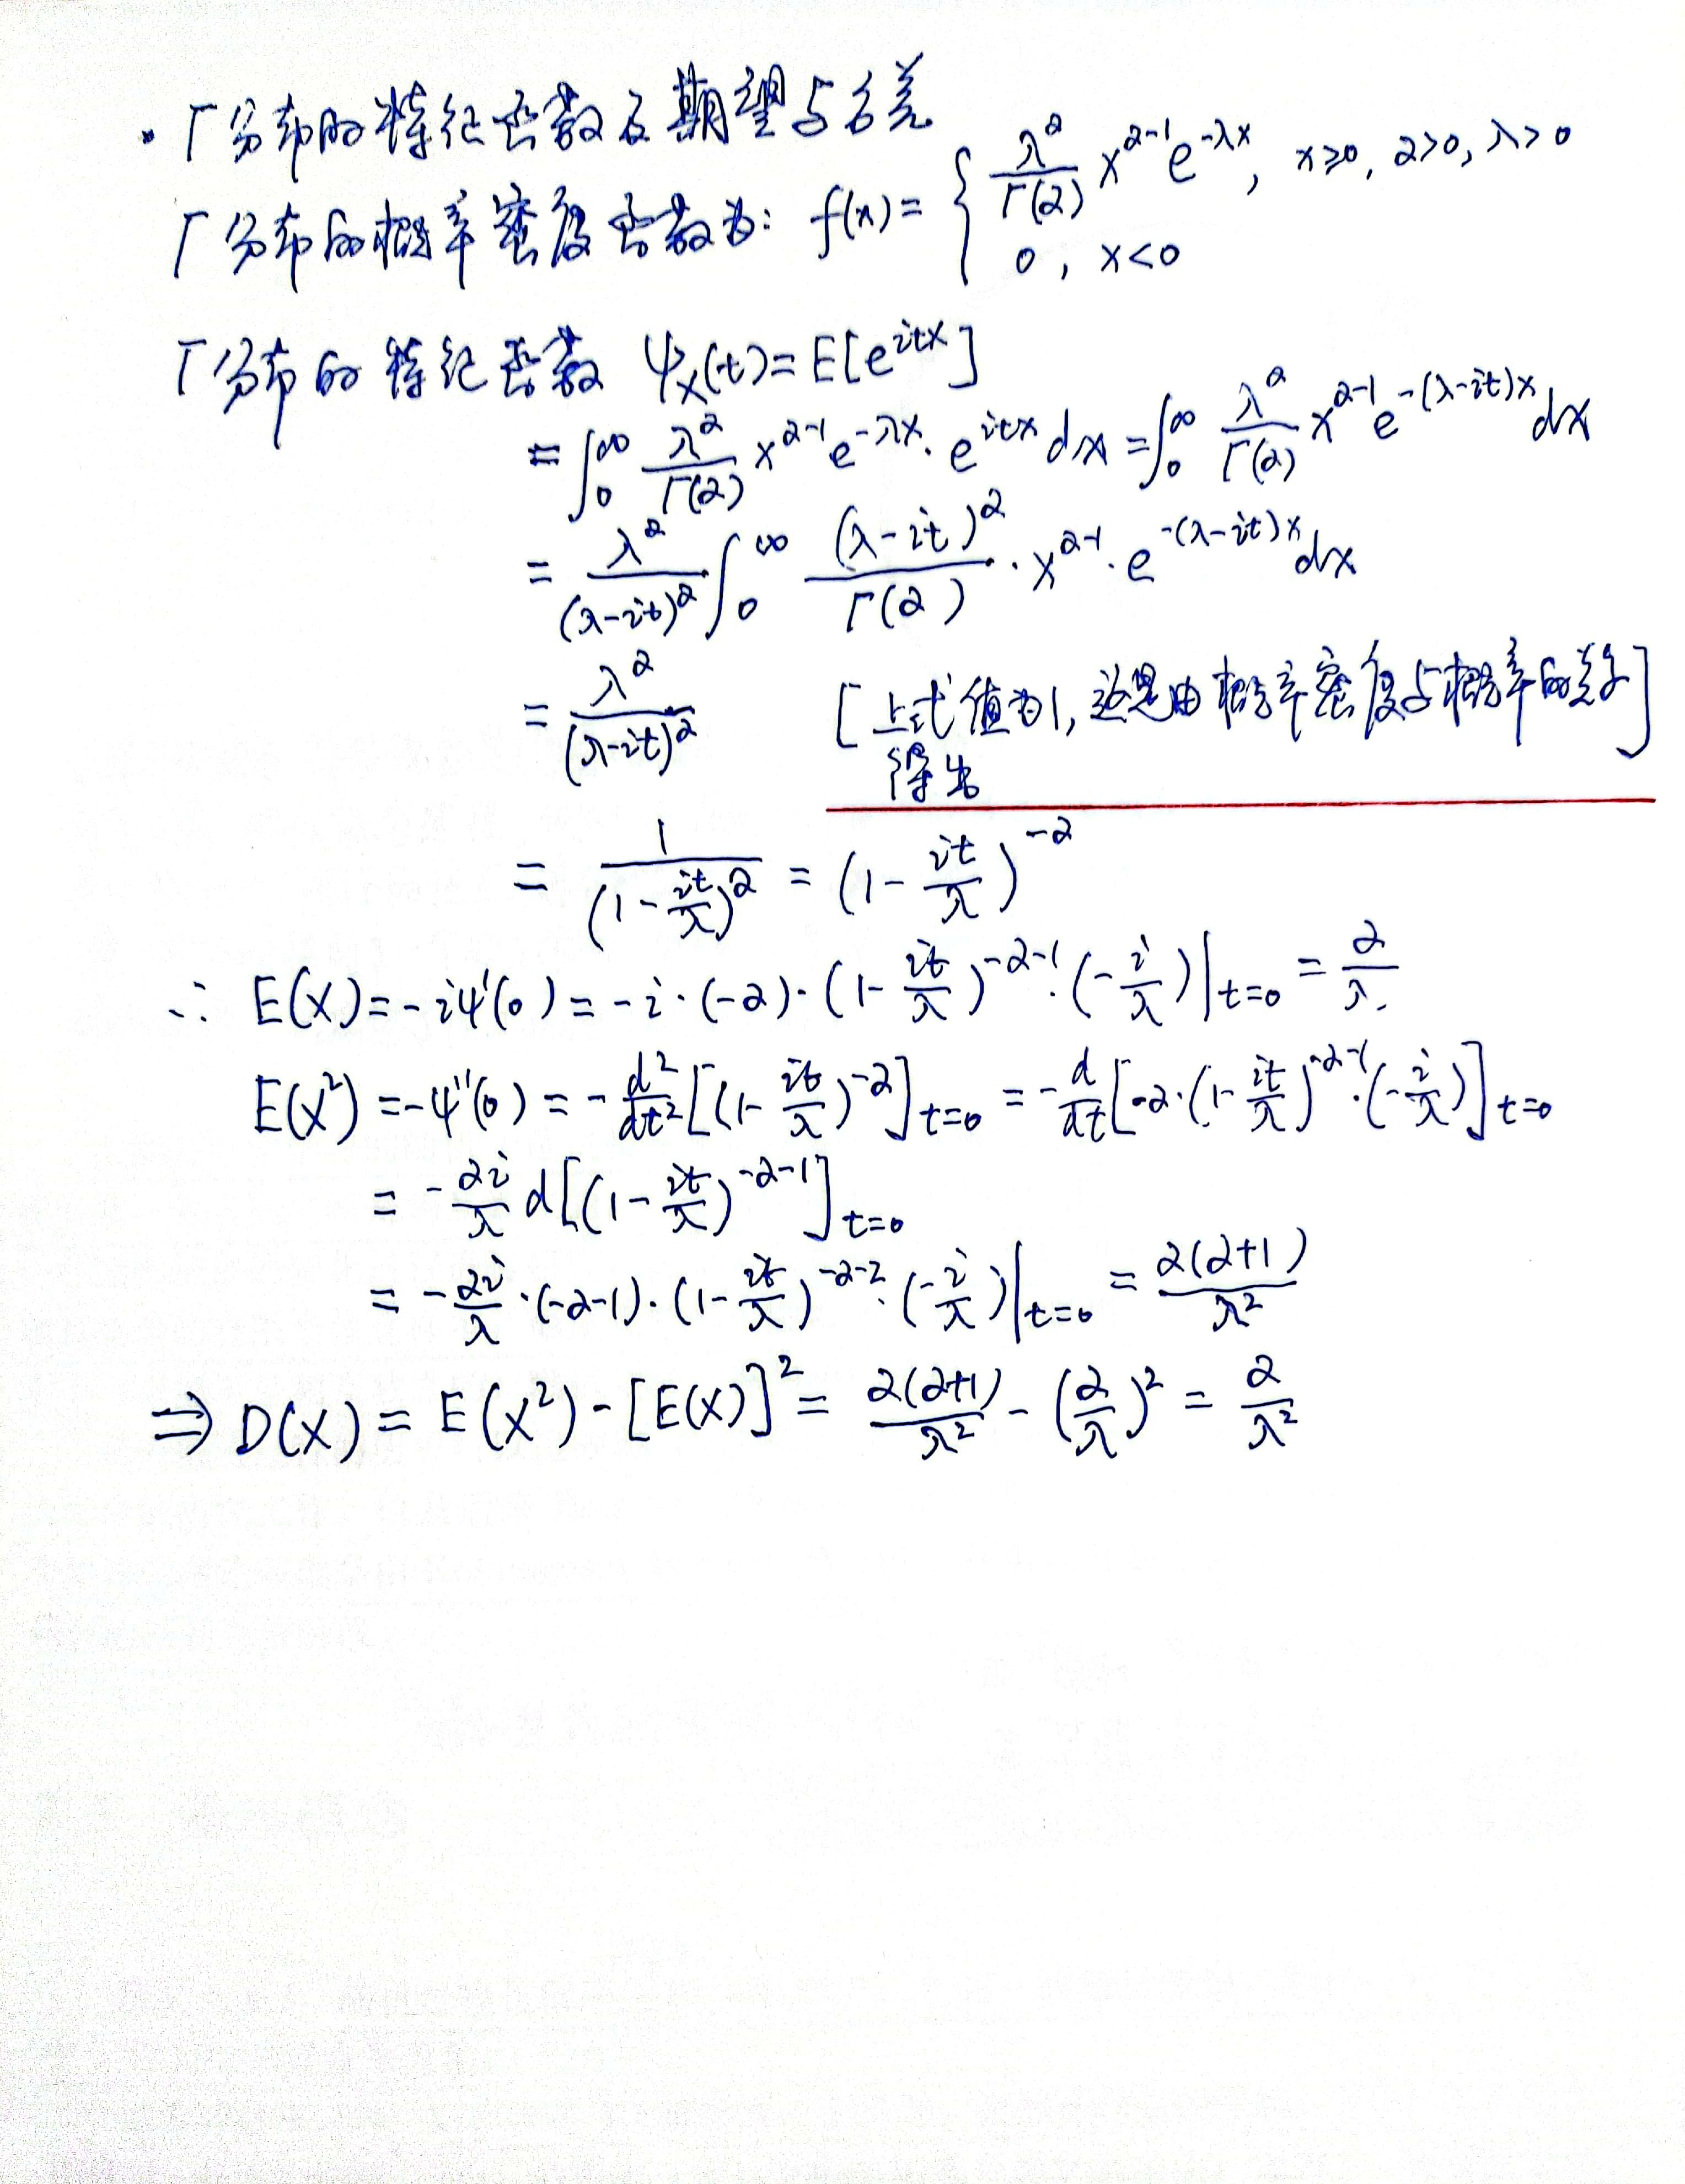 · Γ分布的特征函数及期望与方差
Γ分布的概率密度函数为: f(x) = { λ^α/Γ(α) x^(α-1) e^(-λx), x≥0, α>0, λ>0
0, x<0
Γ分布的特征函数 ψ_X(t) = E[e^(itX)]
= ∫_0^∞ λ^α/Γ(α) x^(α-1) e^(-λx) · e^(itx) dx = ∫_0^∞ λ^α/Γ(α) x^(α-1) e^(-(λ-it)x) dx
= λ^α/(λ-it)^α ∫_0^∞ (λ-it)^α/Γ(α) · x^(α-1) · e^(-(λ-it)x) dx
= λ^α/(λ-it)^α [上式值为1, 这是由概率密度与概率的关系]
得出
= 1/(1 - it/λ)^α = (1 - it/λ)^(-α)
∴ E(X) = -iψ'(0) = -i · (-α) · (1 - it/λ)^(-α-1) · (-i/λ)|_(t=0) = α/λ.
E(X²) = -ψ''(0) = -d²/dt² [(1 - it/λ)^(-α)]_(t=0) = -d/dt [-α · (1 - it/λ)^(-α-1) · (-i/λ)]_(t=0)
= -αi/λ d[(1 - it/λ)^(-α-1)]_(t=0)
= -αi/λ · (-α-1) · (1 - it/λ)^(-α-2) · (-i/λ)|_(t=0) = α(α+1)/λ²
⇒ D(X) = E(X²) - [E(X)]² = α(α+1)/λ² - (α/λ)² = α/λ²